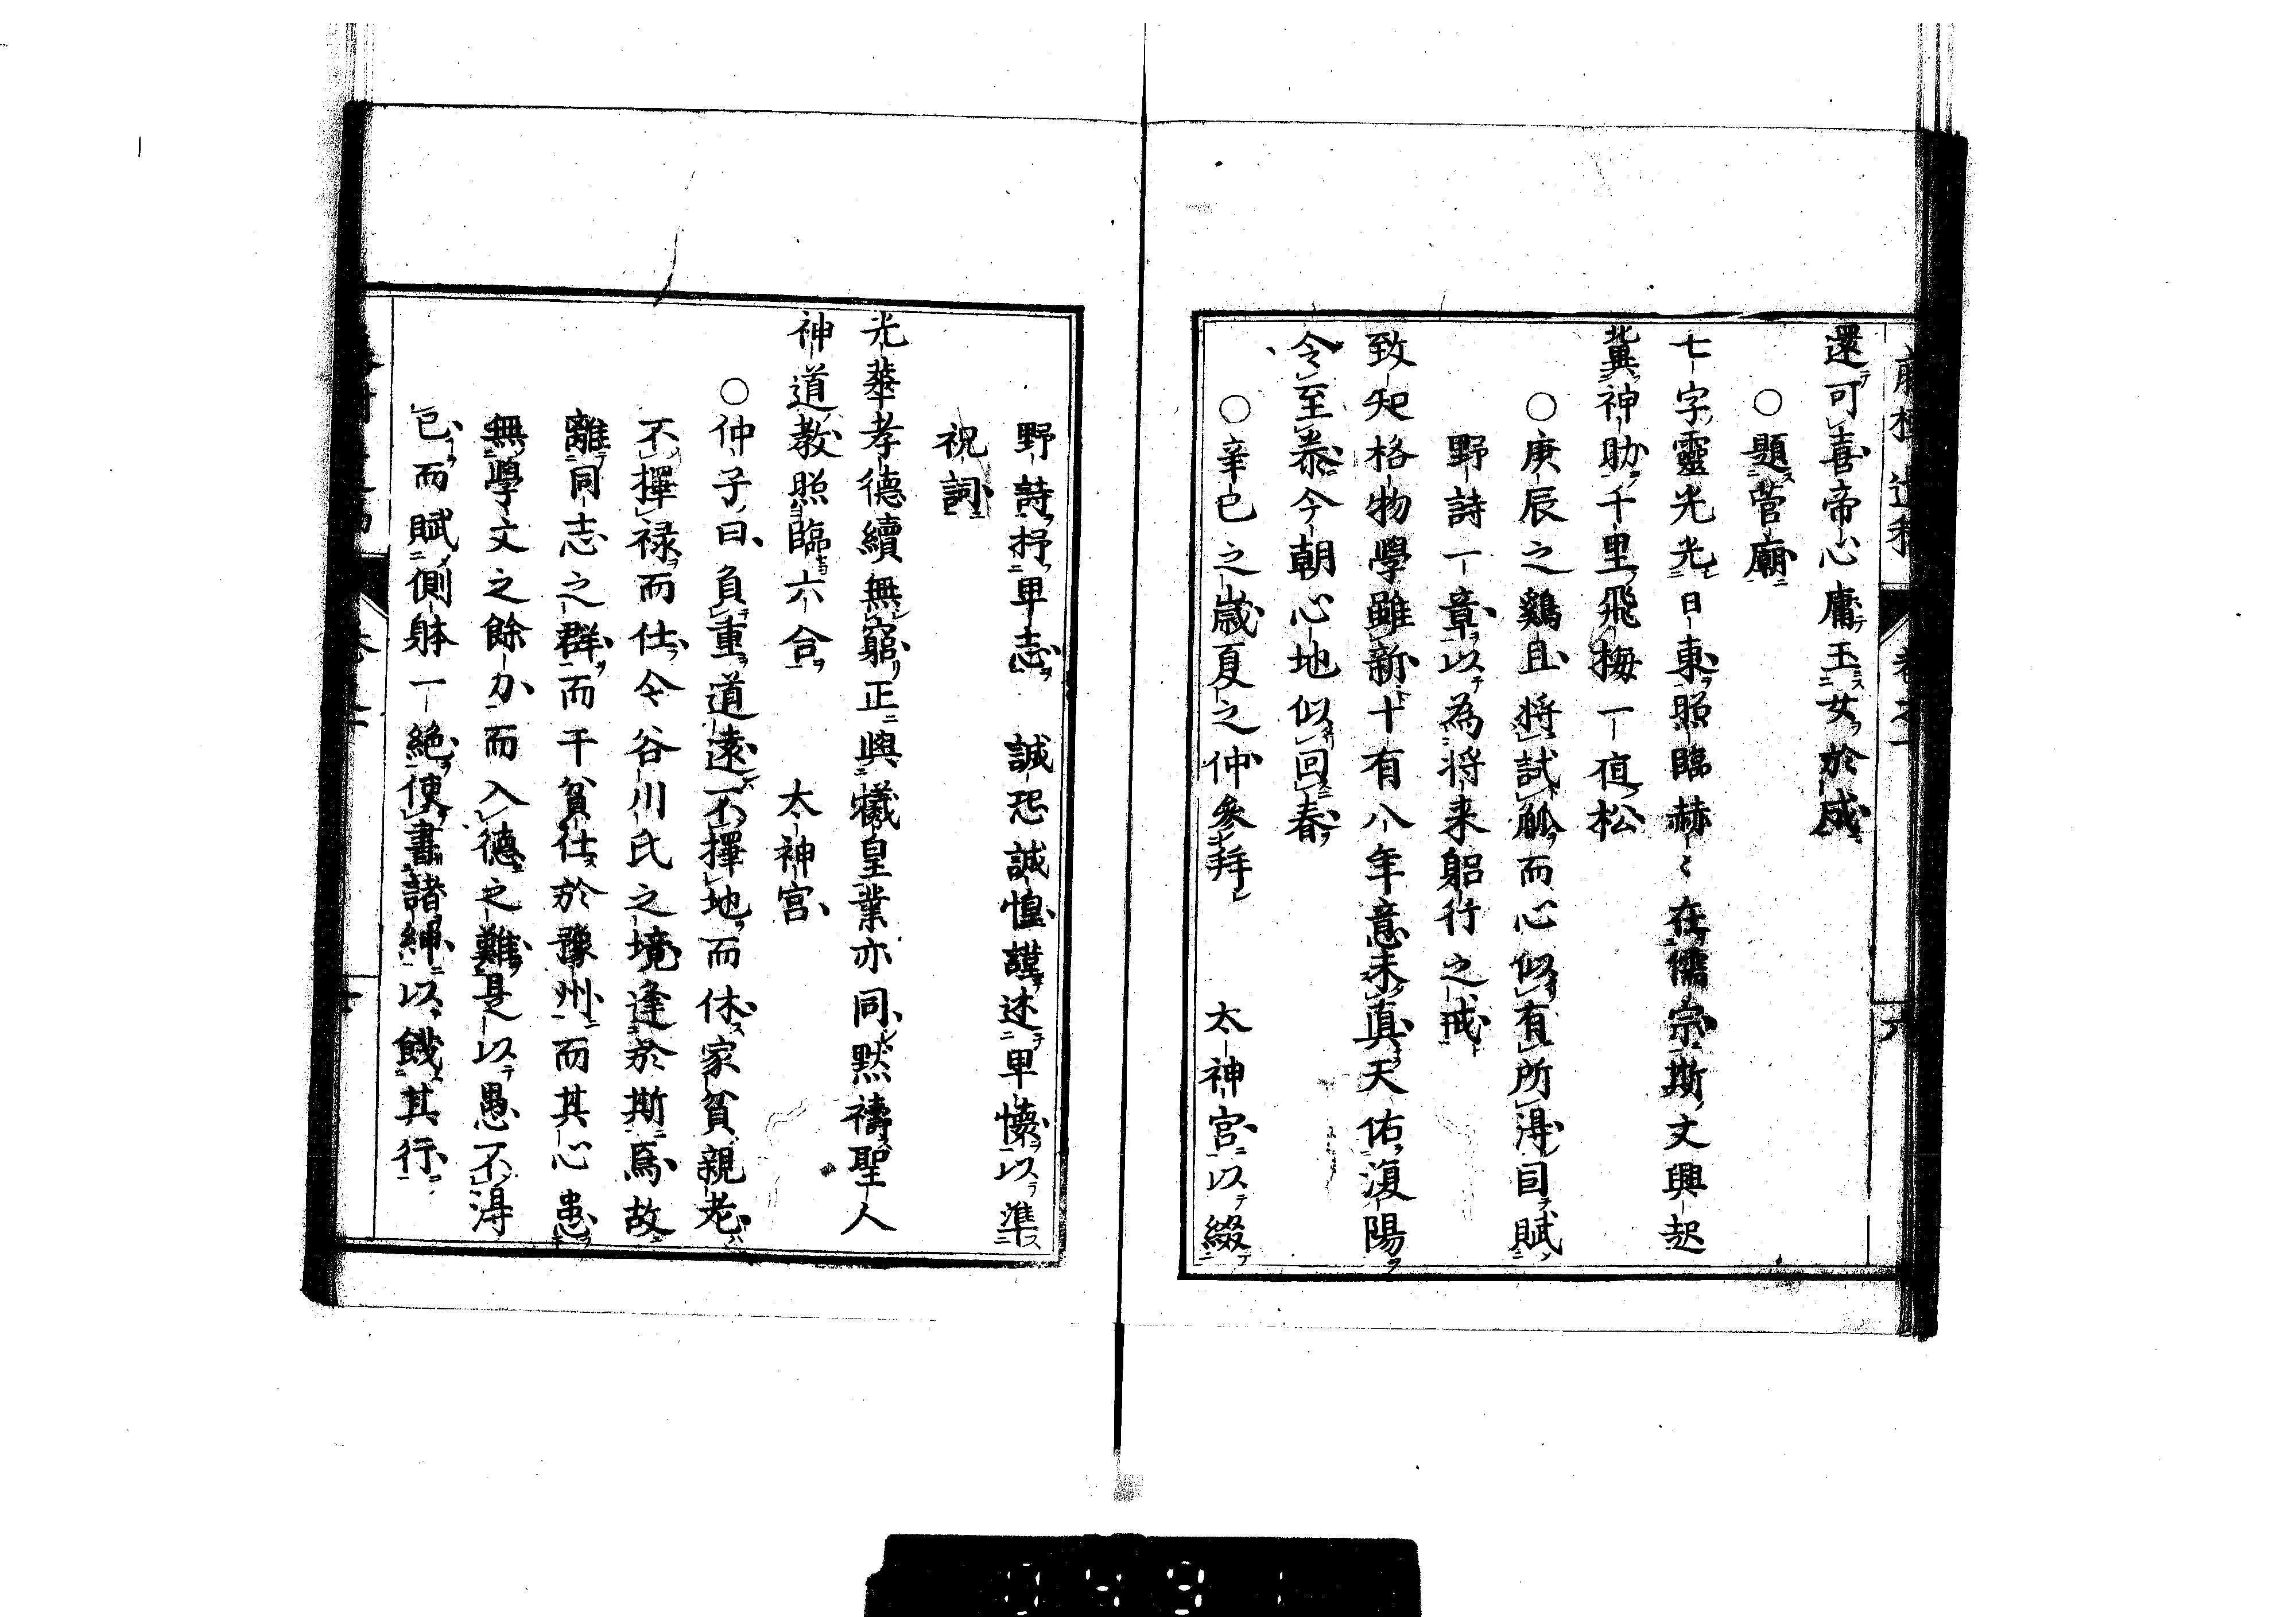 還可喜帝心庸玉女於成
○題菅廟
七字靈光光日東照臨赫々在儒宗斯文興起
冀神助千里飛梅一夜松
○庚辰之鷄旦将試觚而心似有所得因賦
野詩一章以為将来躬行之戒
致知格物學雖新十有八年意未真天佑復陽
令至泰今朝心地似回春
○辛巳之歳夏之仲參拜 太神宮以綴
野詩抒卑志 誠恐誠惶謹述卑懐以準
祝詞
光華孝德續無窮正與犧皇業亦同默禱聖人
神道教照臨六合 太神宮
○仲子曰負重道遠不擇地而休家貧親老
不擇禄而仕今谷川氏之境逢於斯焉故
離同志之群而干貧仕於豫州而其心患
無學文之餘力而入德之難是以愚不得
已而賦側躰一絶使書諸紳以餞其行